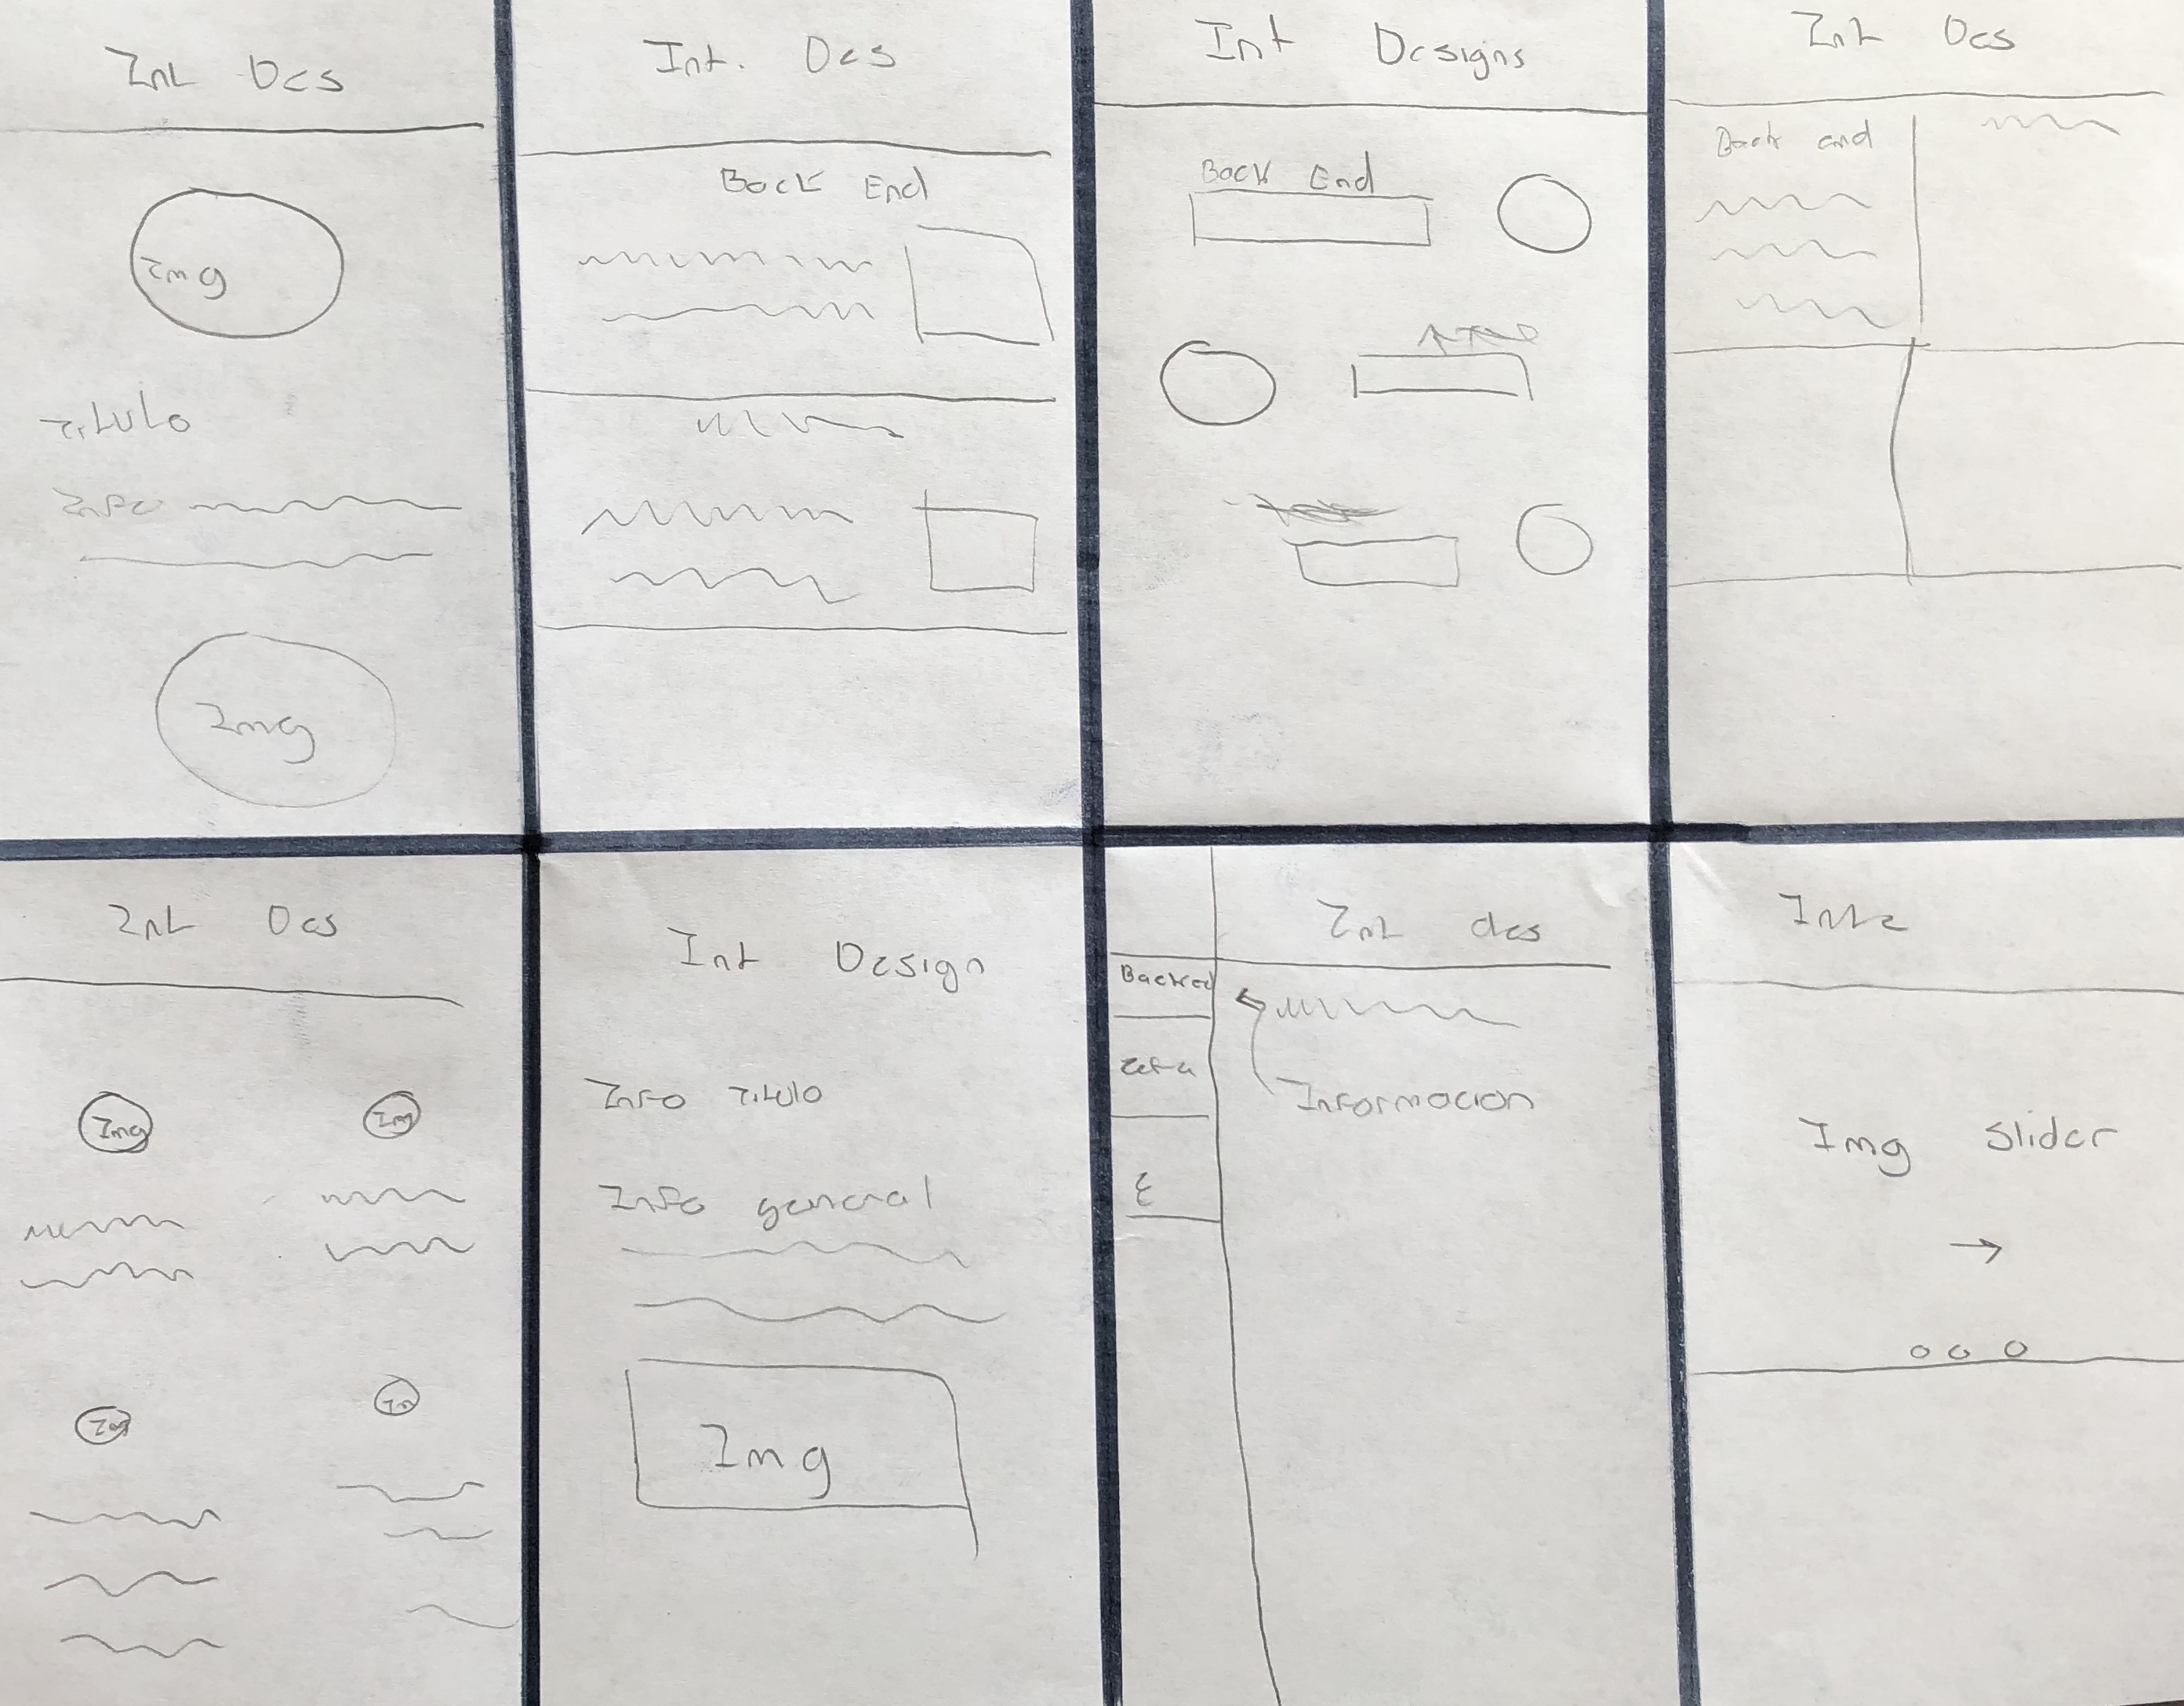 Int Des
Img
Titulo
Info
Img
Int. Des
Back End
Int Designs
Back End
Int Des
Back end
Int Des
Img
Img
Img
Int Design
Info Titulo
Info general
Img
Int des
Informacion
Img Slider